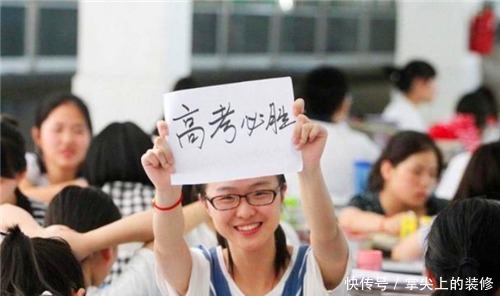 高考必胜
快传号 / 掌尖上的装修